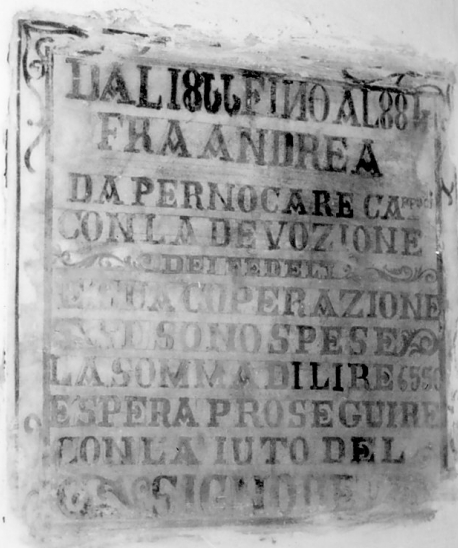 DAL 18JJ FINO AL 884
FRA ANDREA
DA PERNOCARE CAPPUCI
CON LA DEVOZIONE
DEI FEDELI
E SUA COPERAZIONE
SI SONO SPESE
LA SOMMA DI LIRE 6550
E SPERA PROSEGUIRE
CON LA IUTO DEL
SIGNORE